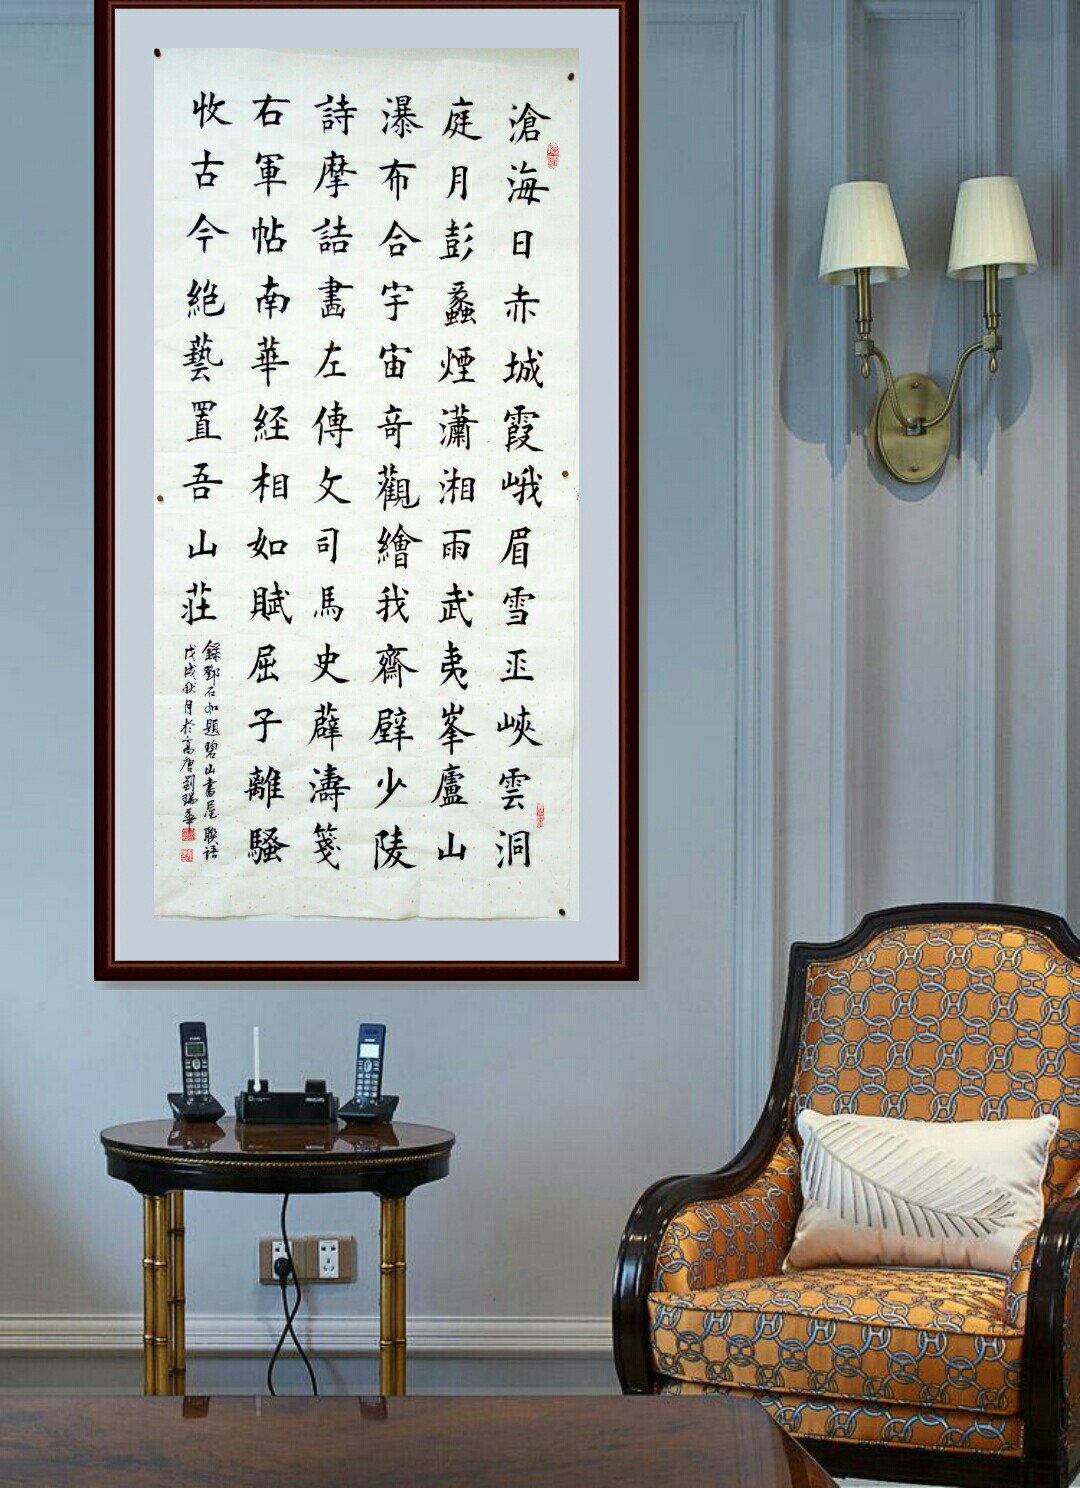 滄海日赤城霞峨眉雪巫峽雲洞
庭月彭蠡煙瀟湘雨武夷峯廬山
瀑布合宇宙奇觀繪我齋壁少陵
詩摩詰畵左傳文司馬史薜濤箋
右軍帖南華経相如賦屈子離騷
收古今絶藝置吾山莊
錄鄧石如題碧山書屋聯語
戊戌秋月於高唐劉瑞華
PHILIPS